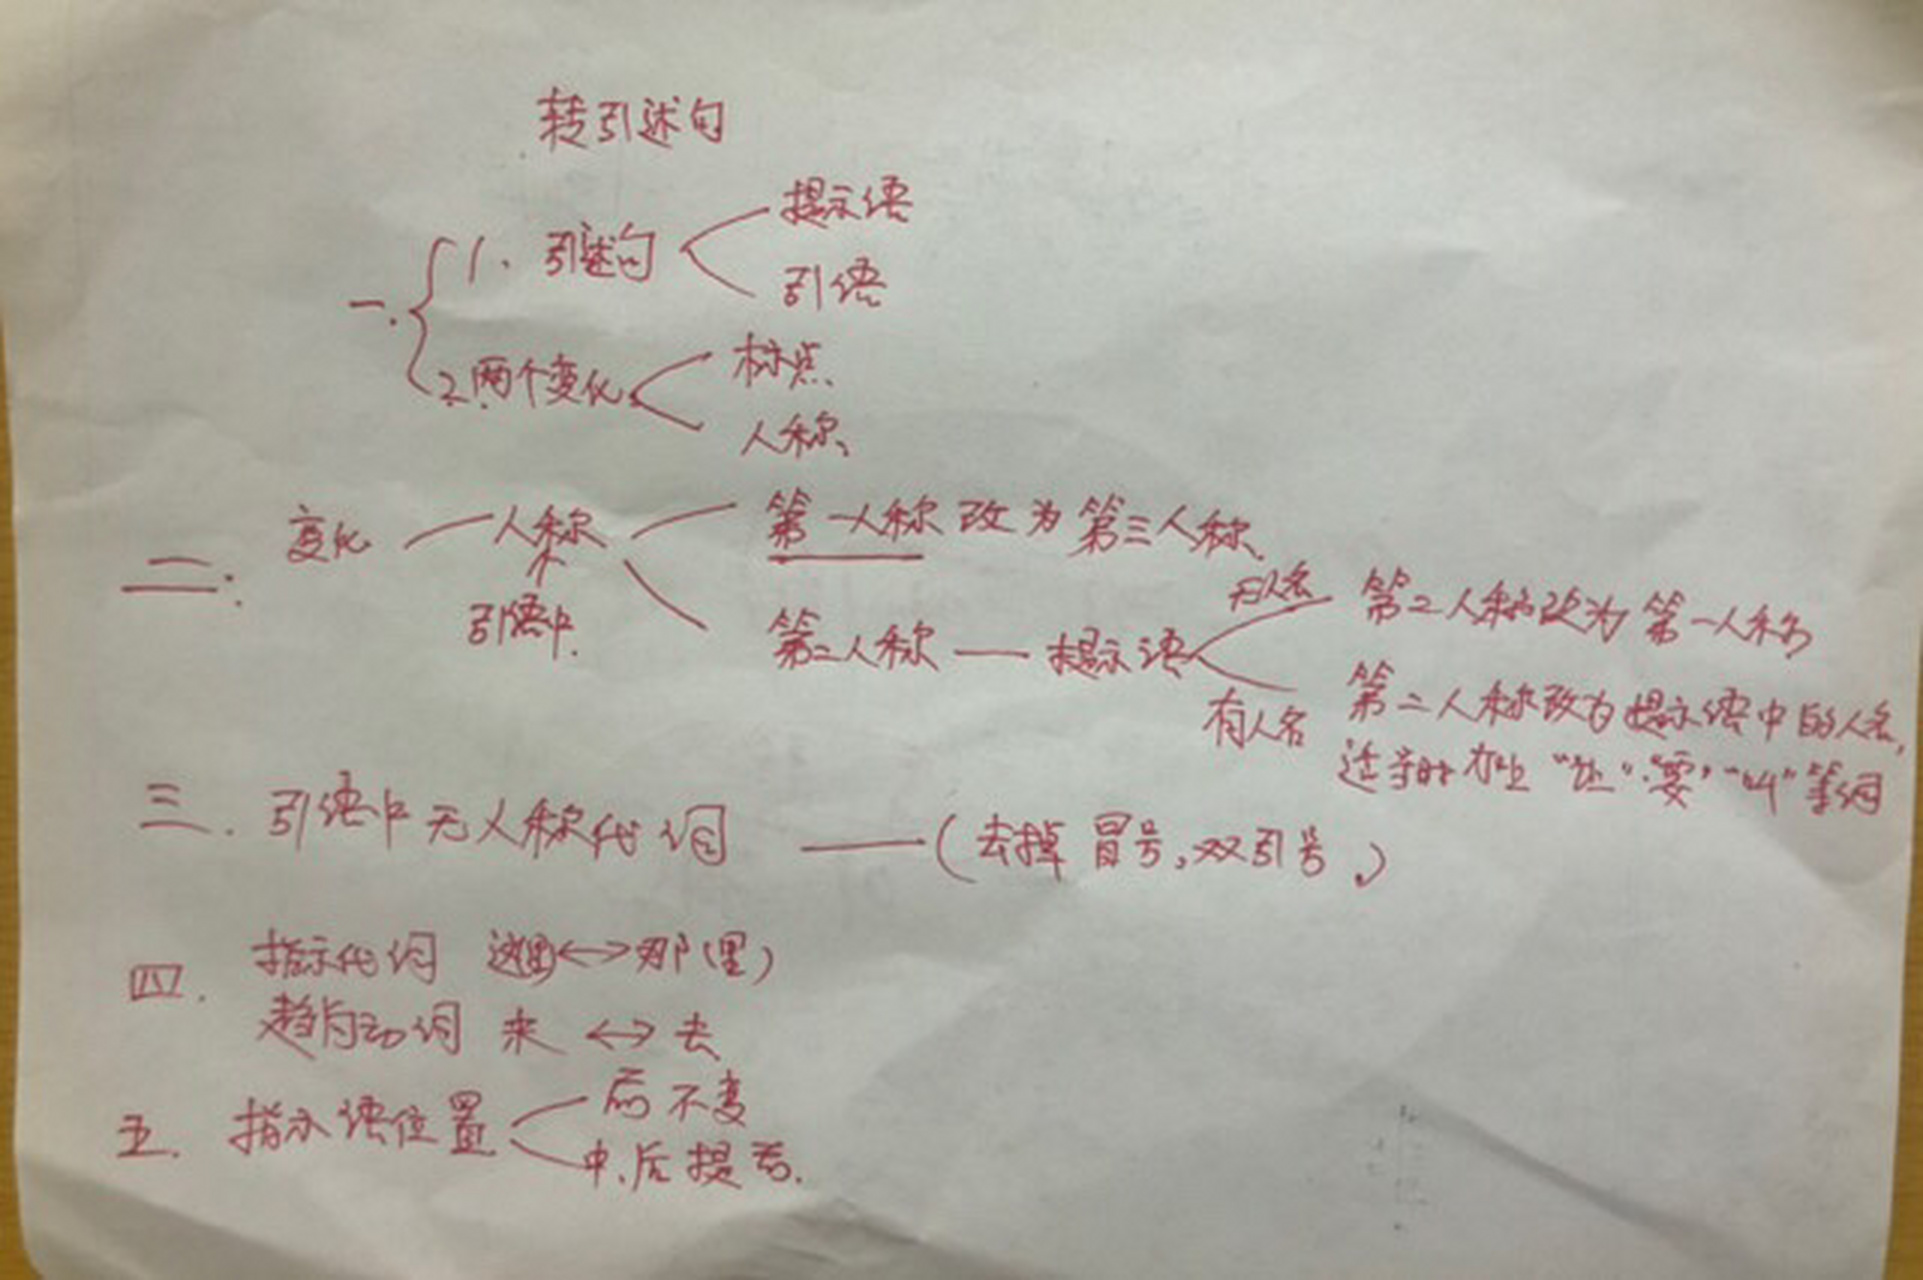 转引述句
一.
1、引述句
提示语
引语
2.两个变化
标点、
人称、
二.
变化 人称
引语中.
第一人称改为第三人称.
第二人称 — 提示语
无人名 第二人称改为第一人称
有人名 第二人称改为提示语中的人名,
适当时加上“让”.“要”“叫”等词
三. 引语中无人称代词 ——(去掉冒号,双引号.)
四. 指示代词 这(里)↔那(里)
趋向动词 来 ↔ 去
五. 指示语位置
前不变
中.后提前.